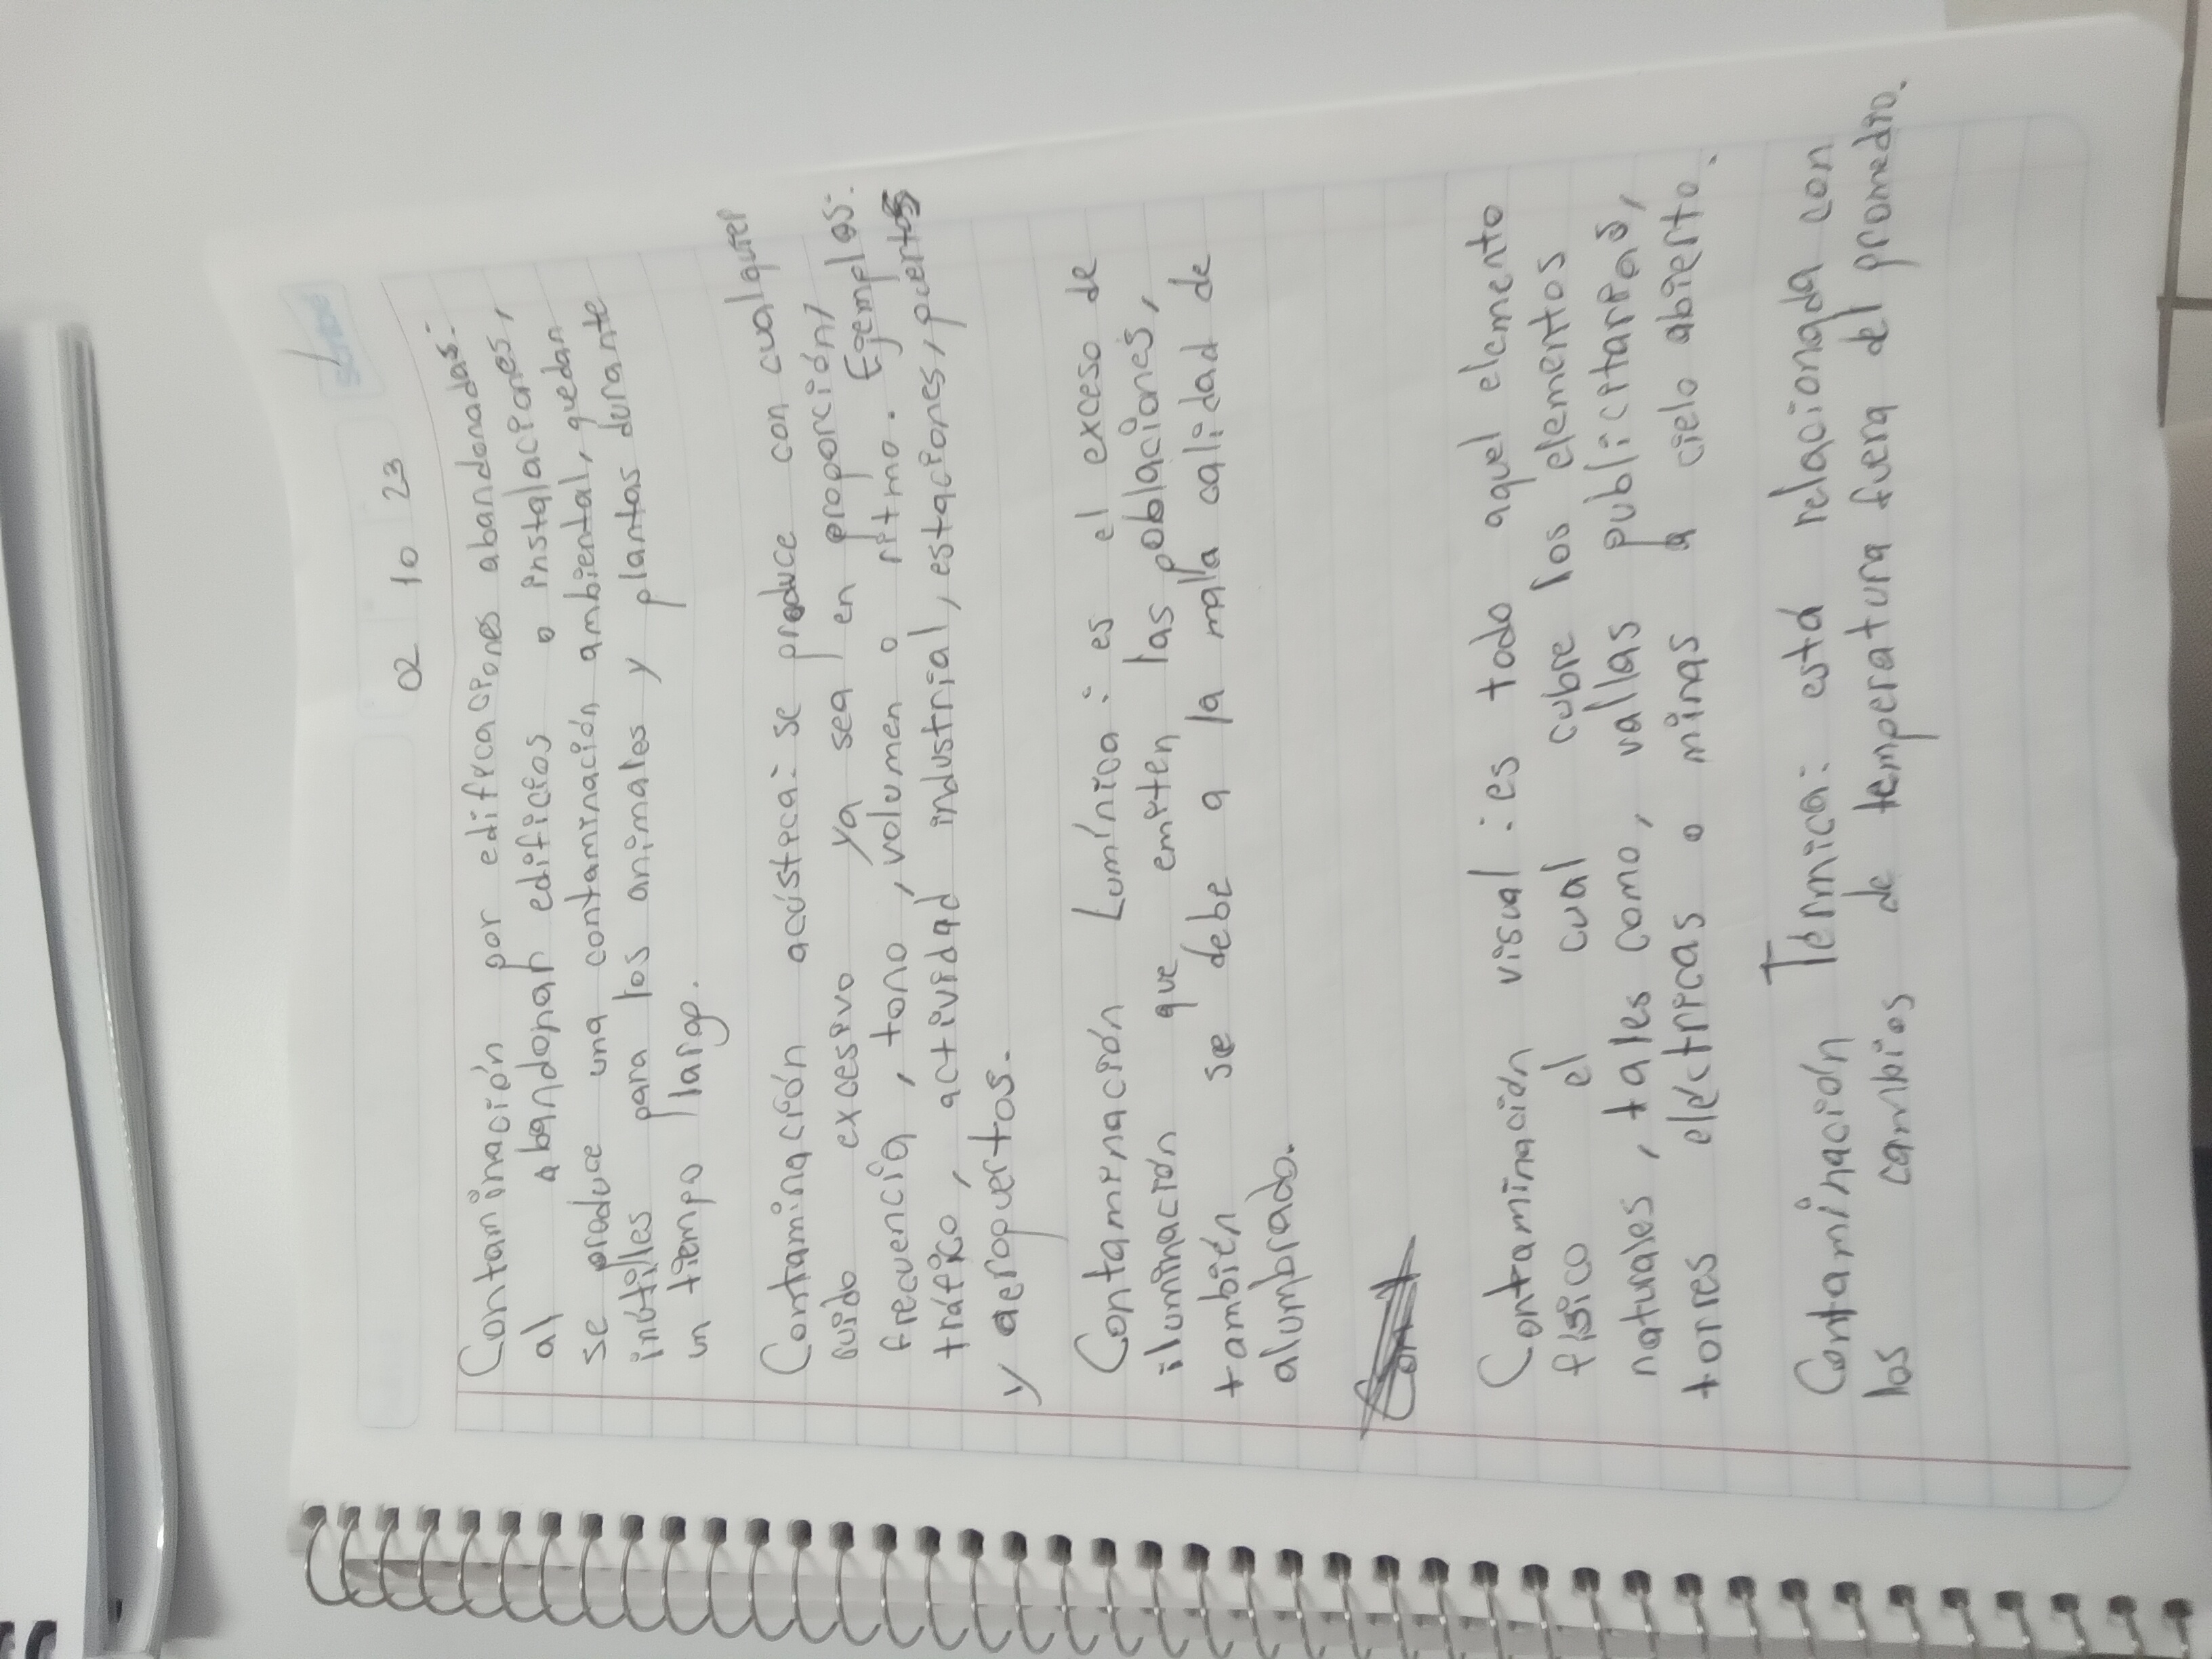 Scribe
02 10 23
Contaminación por edificaciones abandonadas:
al abandonar edificios o instalaciones,
se produce una contaminación ambiental, quedan
inútiles para los animales y plantas durante
un tiempo largo.
Contaminación acústica: se produce con cualquier
ruido excesivo ya sea en proporción,
frecuencia, tono, volumen o ritmo. Ejemplos:
tráfico, actividad industrial, estaciones, puertos
y aeropuertos.
Contaminación Lumínica: es el exceso de
iluminación que emiten las poblaciones,
también se debe a la mala calidad de
alumbrado.
Contaminación visual: es todo aquel elemento
físico el cual cubre los elementos
naturales, tales como, vallas publicitarias,
torres eléctricas o minas a cielo abierto.
Contaminación Térmica: está relacionada con
los cambios de temperatura fuera del promedio.